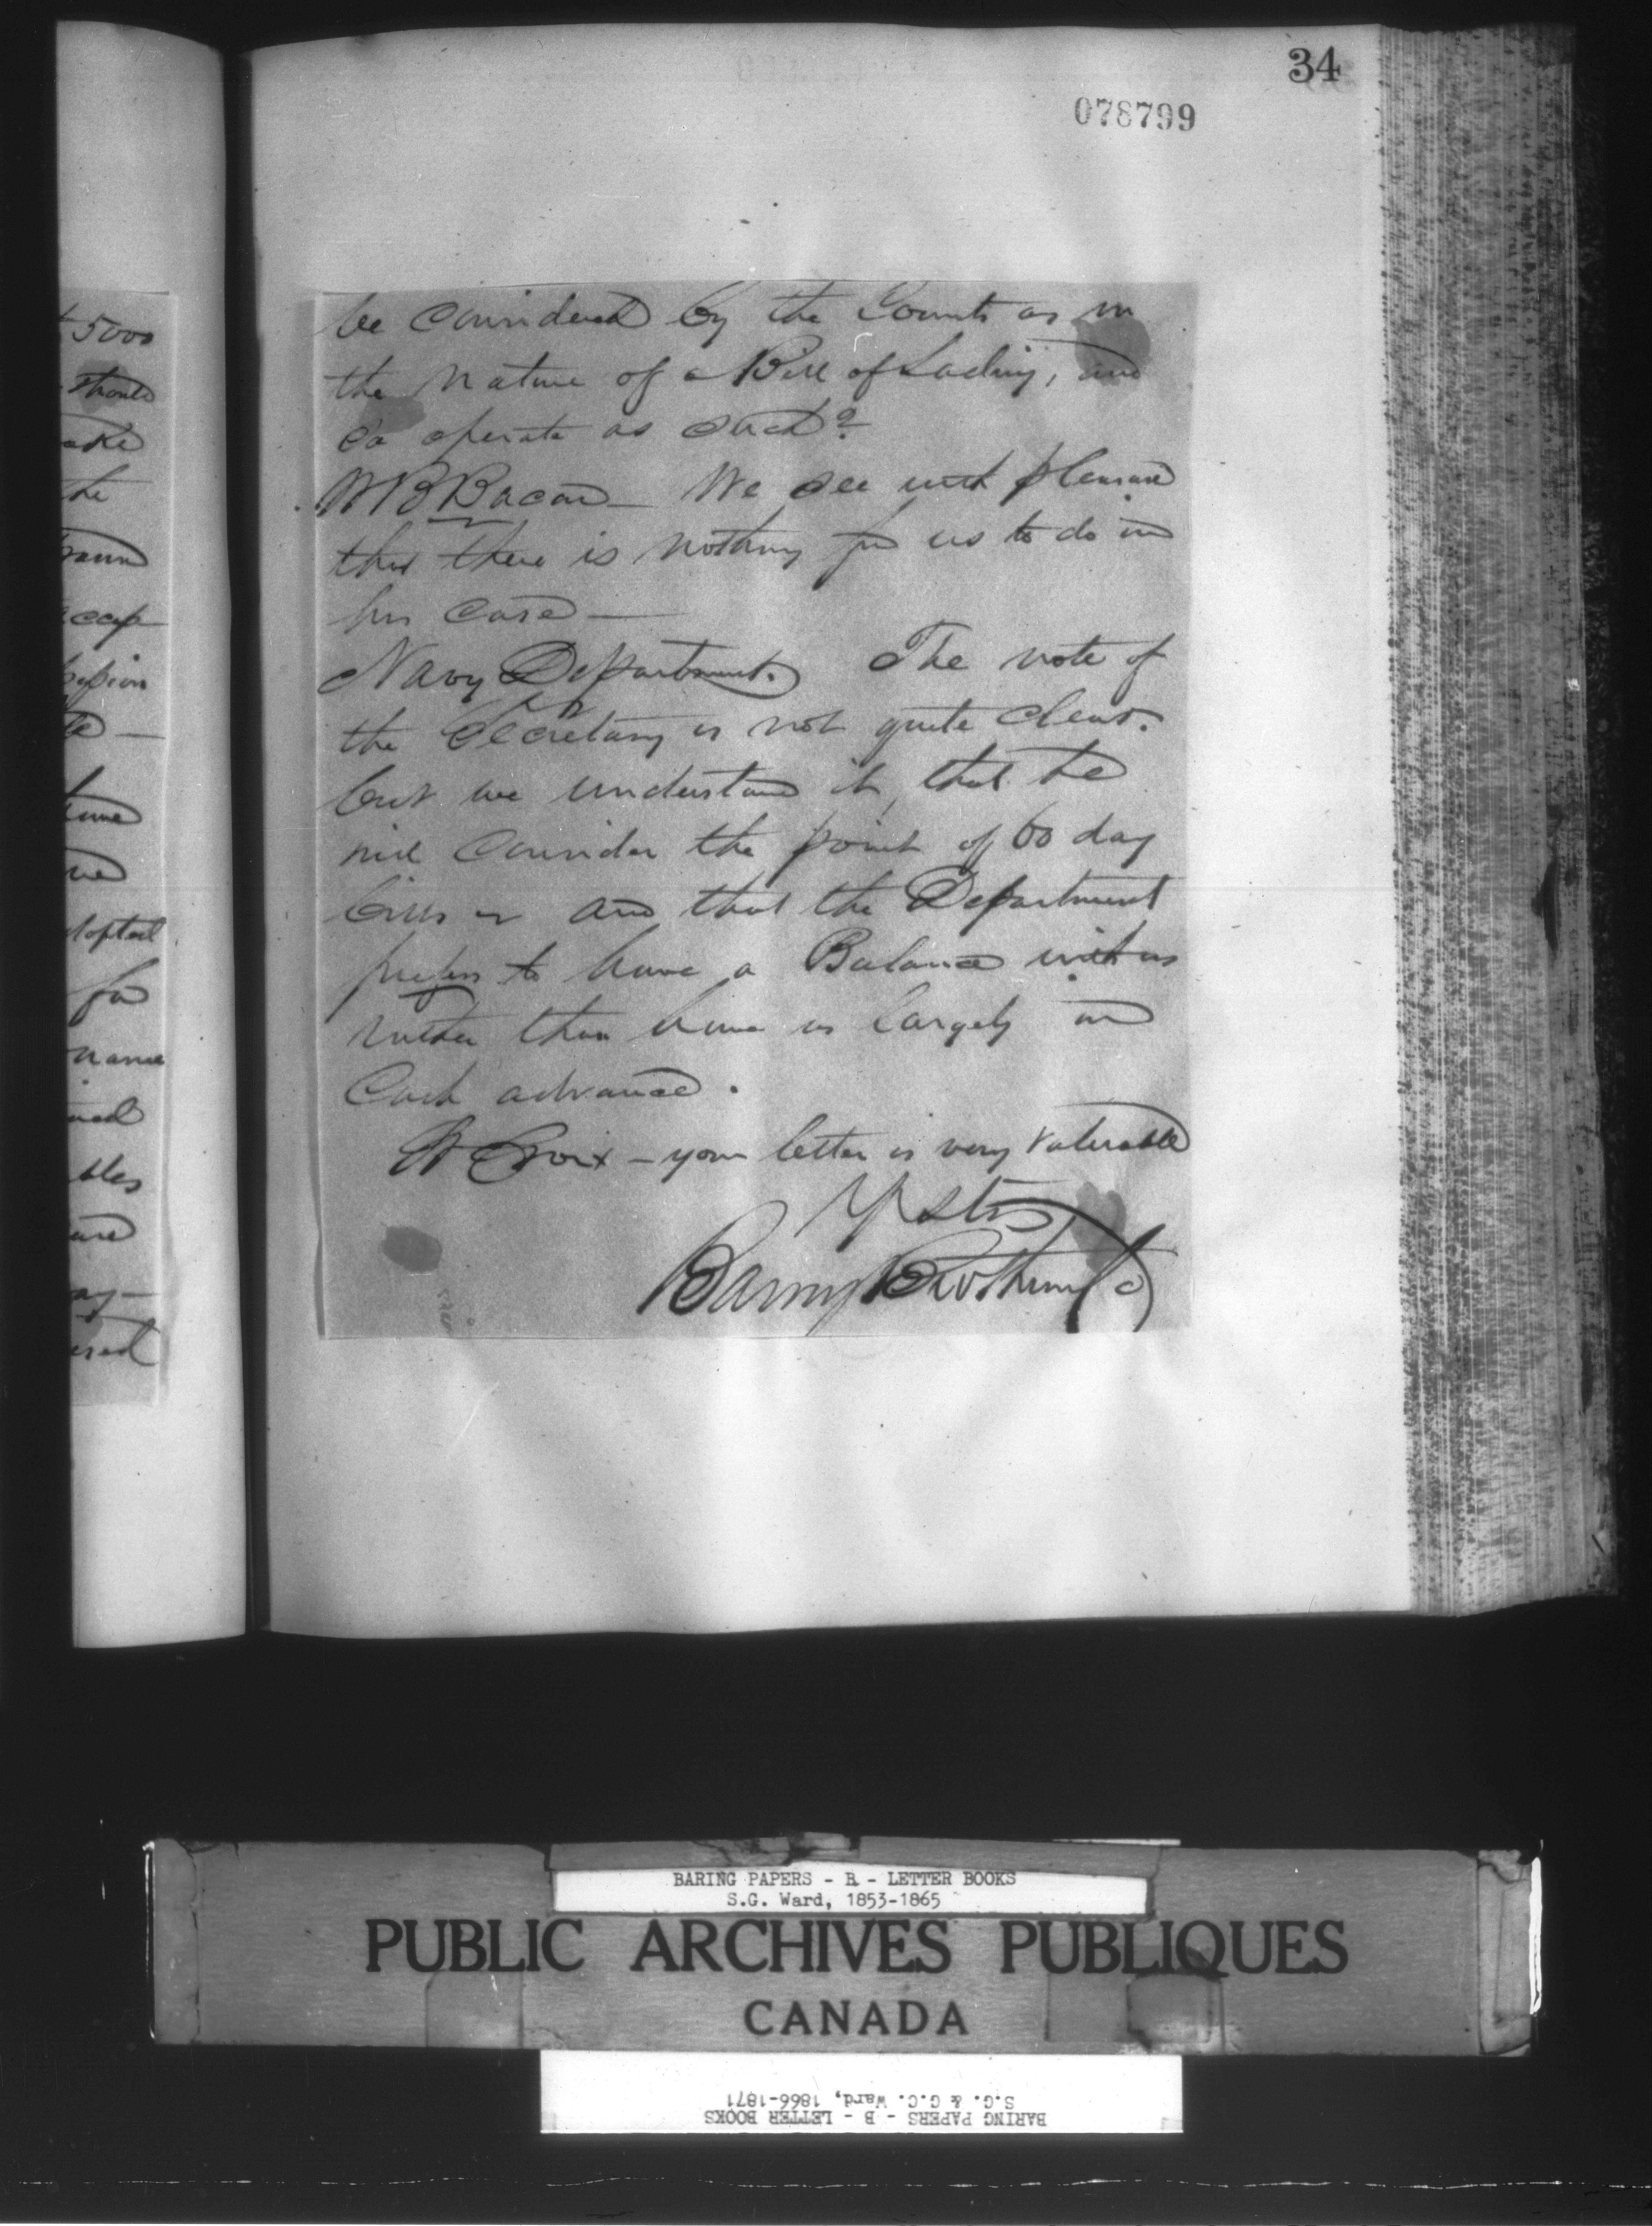 34
078799
5000
should
ake
the
ccep
adopted
for
be considered by the Courts as in
the nature of a Bill of Lading, and
so operate as such?
W B Bacon — We see with pleasure
that there is nothing for us to do in
his case —
Navy Department. The note of
the Secretary is not quite clear.
but we understand it, that he
will consider the point of 60 day
bills and that the Department
prefers to have a Balance with us
rather than have us largely in
Cash advance.
St Croix — your letter is very valuable
Baring Brothers & Co
BARING PAPERS - B - LETTER BOOKS
S.G. Ward, 1853-1865
PUBLIC ARCHIVES PUBLIQUES
CANADA
BARING PAPERS - B - LETTER BOOKS
S.G. & G.C. Ward, 1866-1871